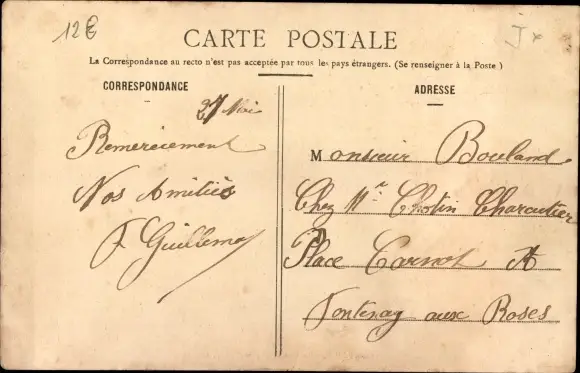 12€
J x
CARTE POSTALE
La Correspondance au recto n'est pas acceptée par tous les pays étrangers. (Se renseigner à la Poste)
CORRESPONDANCE
27 Mai
Remerciement
Nos Amitiés
F. Guillemos
ADRESSE
Monsieur Bouland
Chez Mr Chotin Charcutier
Place Carnot A
Fontenay aux Roses